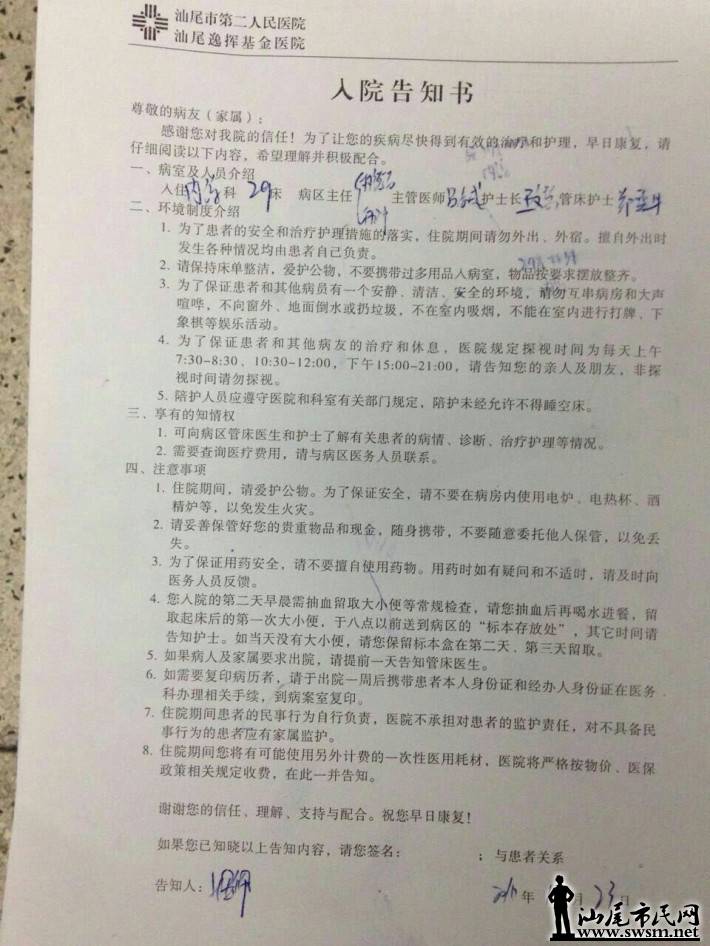 汕尾市第二人民医院
汕尾逸挥基金医院
入院告知书
尊敬的病友（家属）：
感谢您对我院的信任！为了让您的疾病尽快得到有效的治疗和护理，早日康复，请
仔细阅读以下内容，希望理解并积极配合。
一、病室及人员介绍
入住 科 29 床 病区主任 主管医师 护士长 管床护士
二、环境制度介绍
1. 为了患者的安全和治疗护理措施的落实，住院期间请勿外出、外宿。擅自外出时
发生各种情况均由患者自己负责。
2. 请保持床单整洁，爱护公物，不要携带过多用品入病室，物品按要求摆放整齐。
3. 为了保证患者和其他病员有一个安静、清洁、安全的环境，请勿互串病房和大声
喧哗，不向窗外、地面倒水或扔垃圾，不在室内吸烟，不能在室内进行打牌、下
象棋等娱乐活动。
4. 为了保证患者和其他病友的治疗和休息，医院规定探视时间为每天上午
7:30-8:30、10:30-12:00，下午15:00-21:00，请告知您的亲人及朋友，非探
视时间请勿探视。
5. 陪护人员应遵守医院和科室有关部门规定，陪护未经允许不得睡空床。
三、享有的知情权
1. 可向病区管床医生和护士了解有关患者的病情、诊断、治疗护理等情况。
2. 需要查询医疗费用，请与病区医务人员联系。
四、注意事项
1. 住院期间，请爱护公物。为了保证安全，请不要在病房内使用电炉、电热杯、酒
精炉等，以免发生火灾。
2. 请妥善保管好您的贵重物品和现金，随身携带，不要随意委托他人保管，以免丢
失。
3. 为了保证用药安全，请不要擅自使用药物。用药时如有疑问和不适时，请及时向
医务人员反馈。
4. 您入院的第二天早晨需抽血留取大小便等常规检查，请您抽血后再喝水进餐，留
取起床后的第一次大小便，于八点以前送到病区的“标本存放处”，其它时间请
告知护士。如当天没有大小便，请您保留标本盒在第二天、第三天留取。
5. 如果病人及家属要求出院，请提前一天告知管床医生。
6. 如需要复印病历者，请于出院一周后携带患者本人身份证和经办人身份证在医务
科办理相关手续，到病案室复印。
7. 住院期间患者的民事行为自行负责，医院不承担对患者的监护责任，对不具备民
事行为的患者应有家属监护。
8. 住院期间您将有可能使用另外计费的一次性医用耗材，医院将严格按物价、医保
政策相关规定收费，在此一并告知。
谢谢您的信任、理解、支持与配合。祝您早日康复！
如果您已知晓以上告知内容，请您签名： ；与患者关系
告知人： 年 月 23 日
汕尾市民网
www.swsm.net